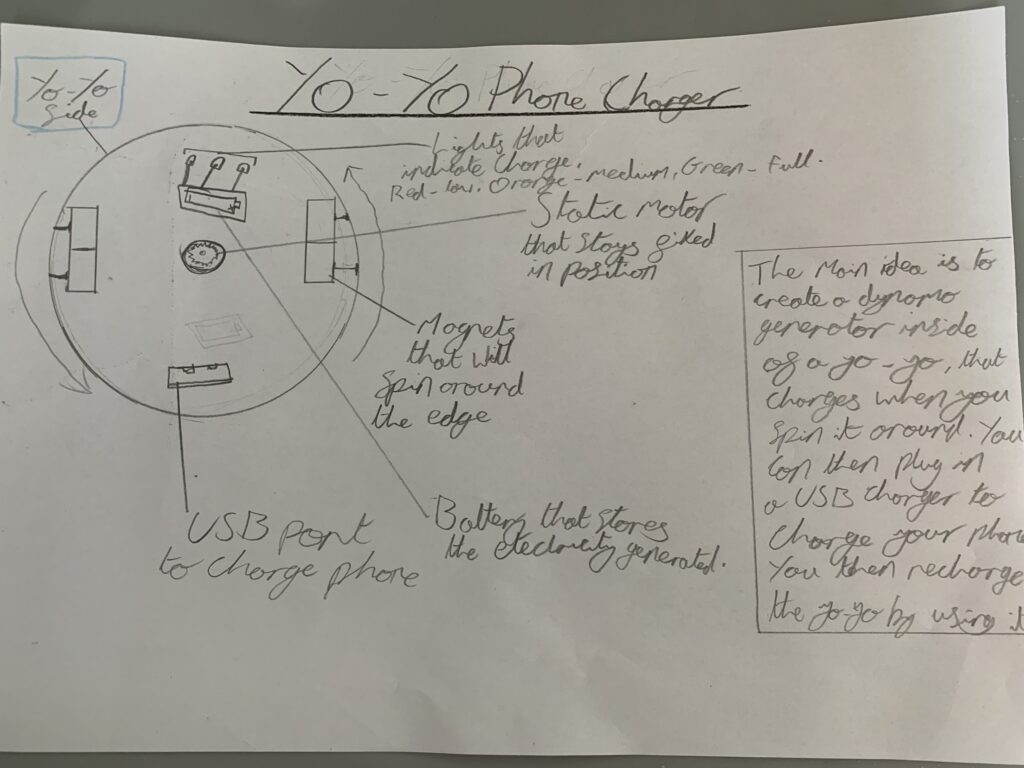 Yo-Yo Phone Charger
Yo-Yo
Side
Lights that
indicate charge.
Red-low, Orange-medium, Green-Full.
Static Motor
that stays fixed
in position
Magnets
that will
spin around
the edge
USB port
to charge phone
Battery that stores
the electricity generated.
The main idea is to
create a dynamo
generator inside
of a yo-yo, that
charges when you
spin it around. You
can then plug in
a USB charger to
charge your phone
You then recharge
the yo-yo by using it